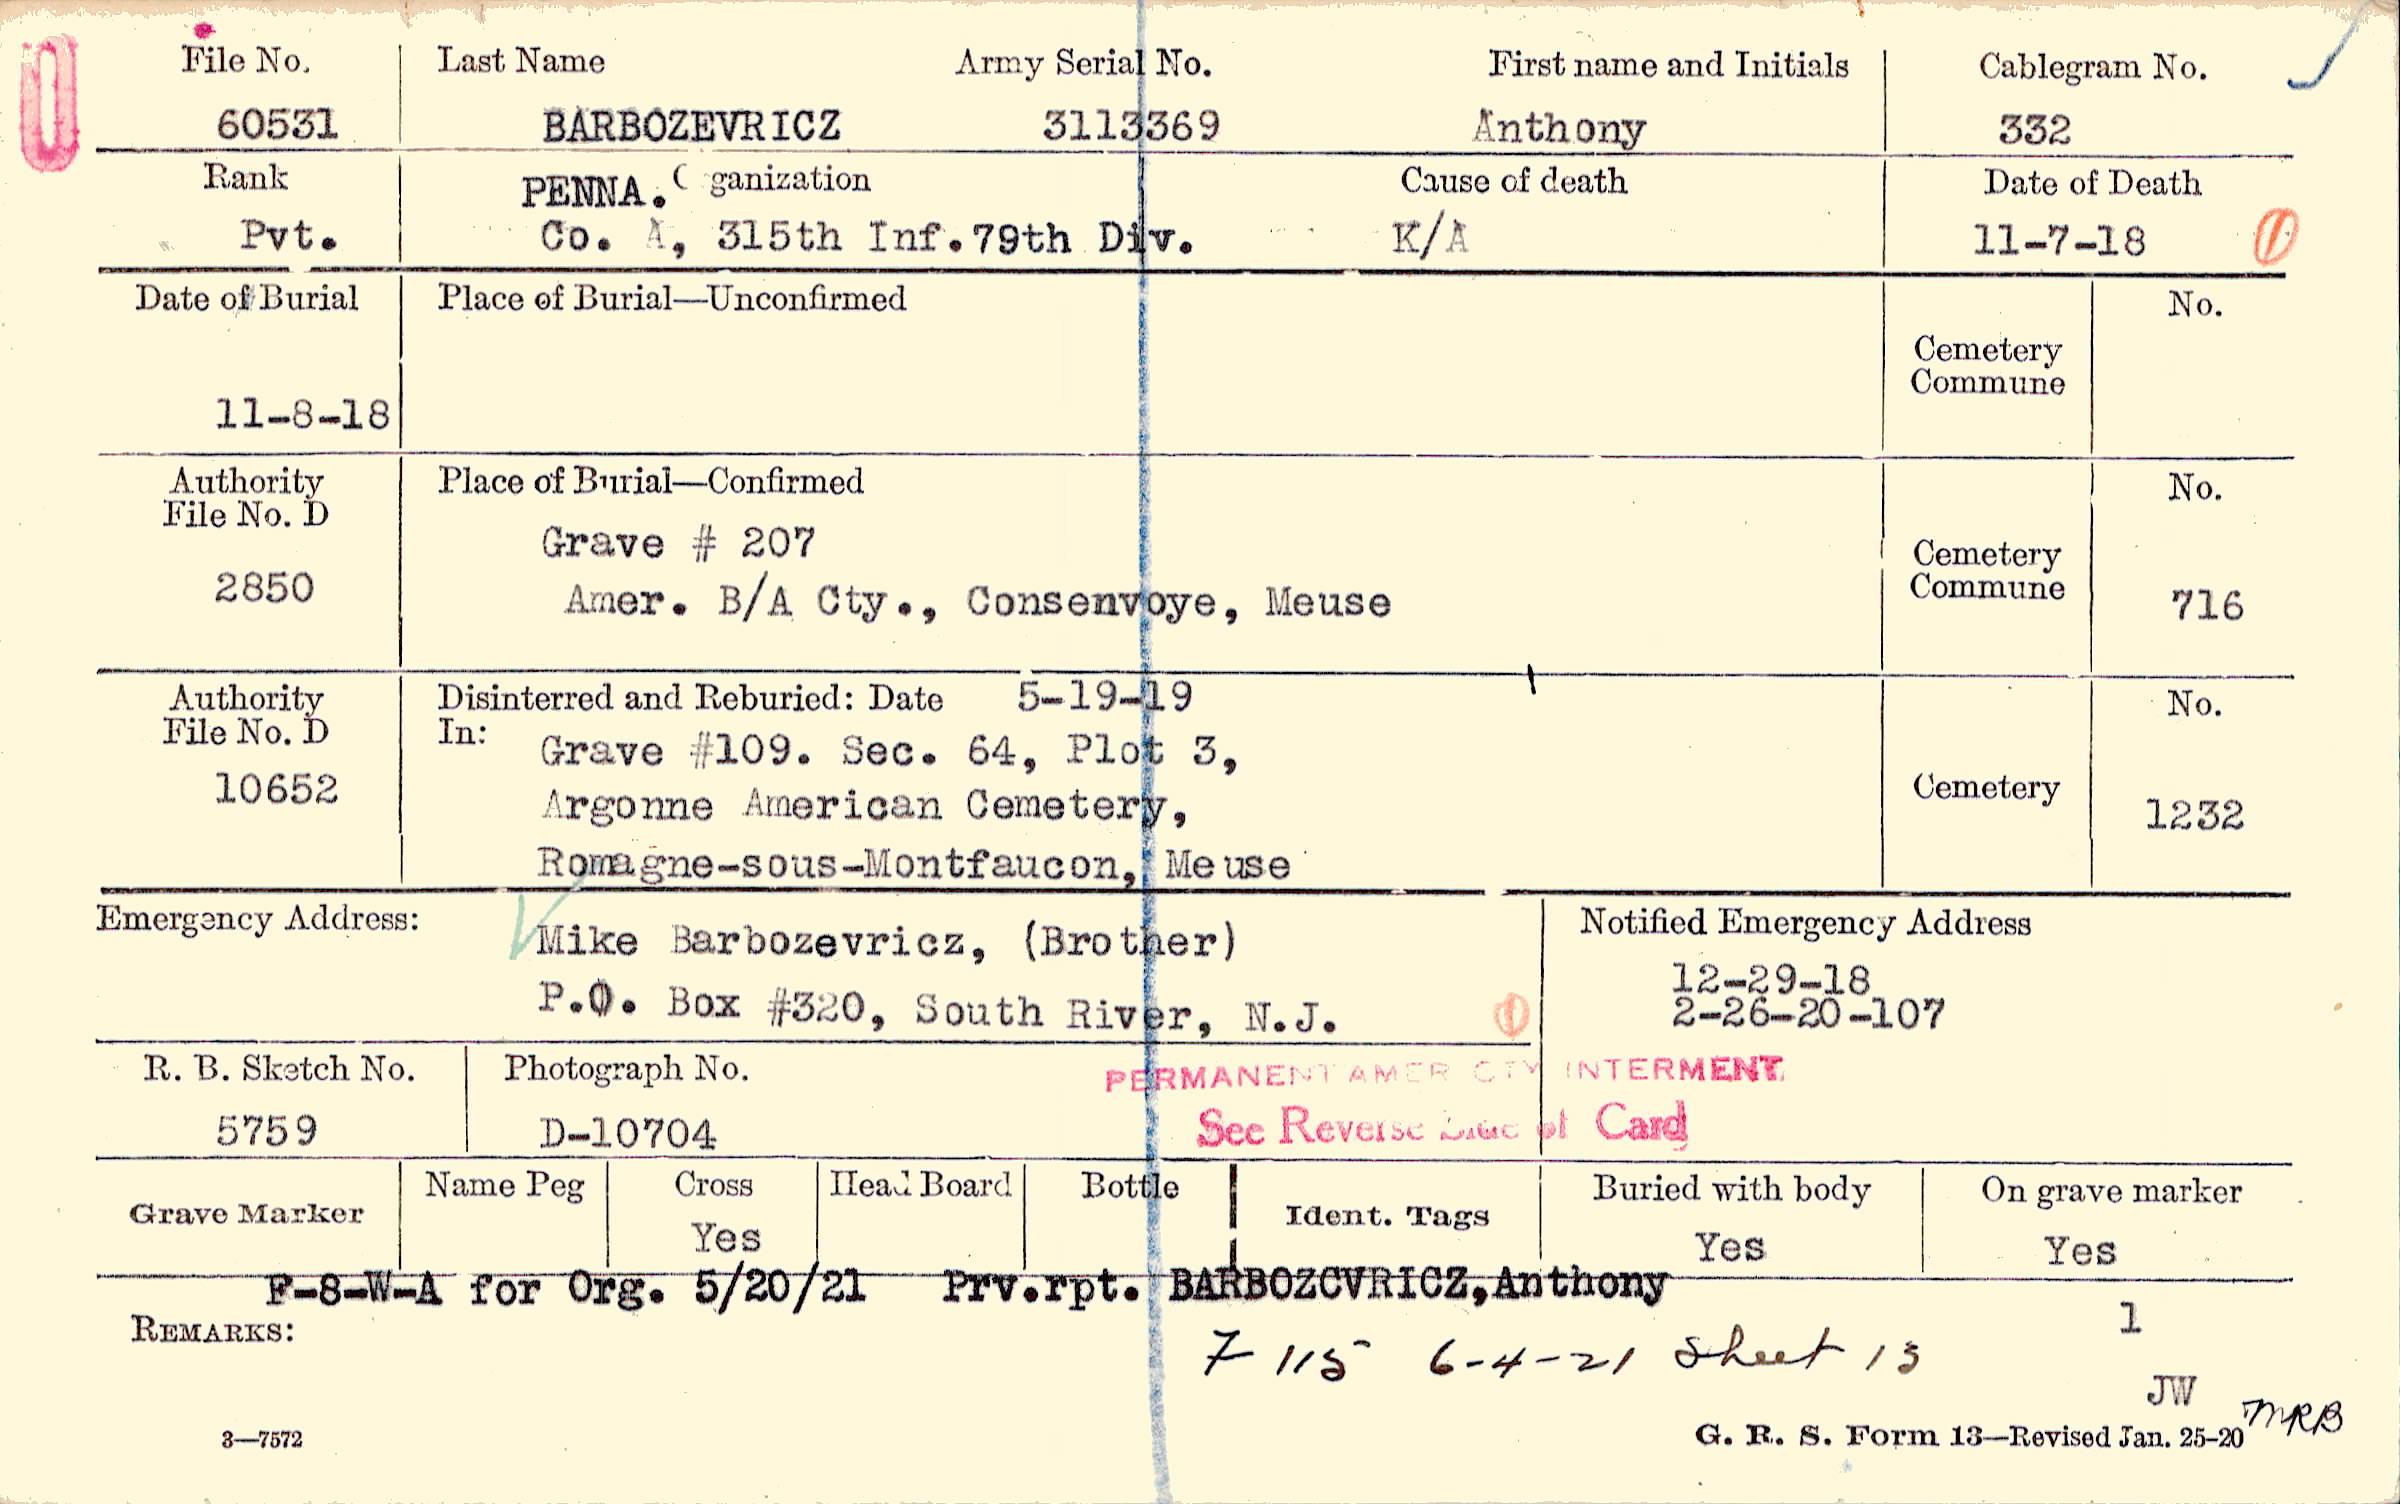 File No. Last Name Army Serial No. First name and Initials Cablegram No.
60531 BARBOZEVRICZ 3113369 Anthony 332
Rank PENNA. ganization Cause of death Date of Death
Pvt. Co. A, 315th Inf.79th Div. K/A 11-7-18
Date of Burial Place of Burial—Unconfirmed No.
Cemetery
Commune
11-8-18
Authority Place of Burial—Confirmed No.
File No. D
Grave # 207
Cemetery
2850 Commune
Amer. B/A Cty., Consenvoye, Meuse 716
Authority Disinterred and Reburied: Date 5-19-19 No.
File No. D In:
Grave #109. Sec. 64, Plot 3,
10652 Cemetery
Argonne American Cemetery, 1232
Romagne-sous-Montfaucon, Meuse
Emergency Address: Notified Emergency Address
Mike Barbozevricz, (Brother)
12-29-18
P.O. Box #320, South River, N.J. 2-26-20-107
R. B. Sketch No. Photograph No. PERMANENT AMER CTY INTERMENT
5759 D-10704 See Reverse Side of Card
Name Peg Cross Head Board Bottle Buried with body On grave marker
Grave Marker Ident. Tags
Yes Yes Yes
F-8-W-A for Org. 5/20/21 Prv.rpt. BARBOZCVRICZ,Anthony
REMARKS: 1
7 115 6-4-21 Sheet 13
JW
MRB
3—7572 G. R. S. Form 13—Revised Jan. 25-20